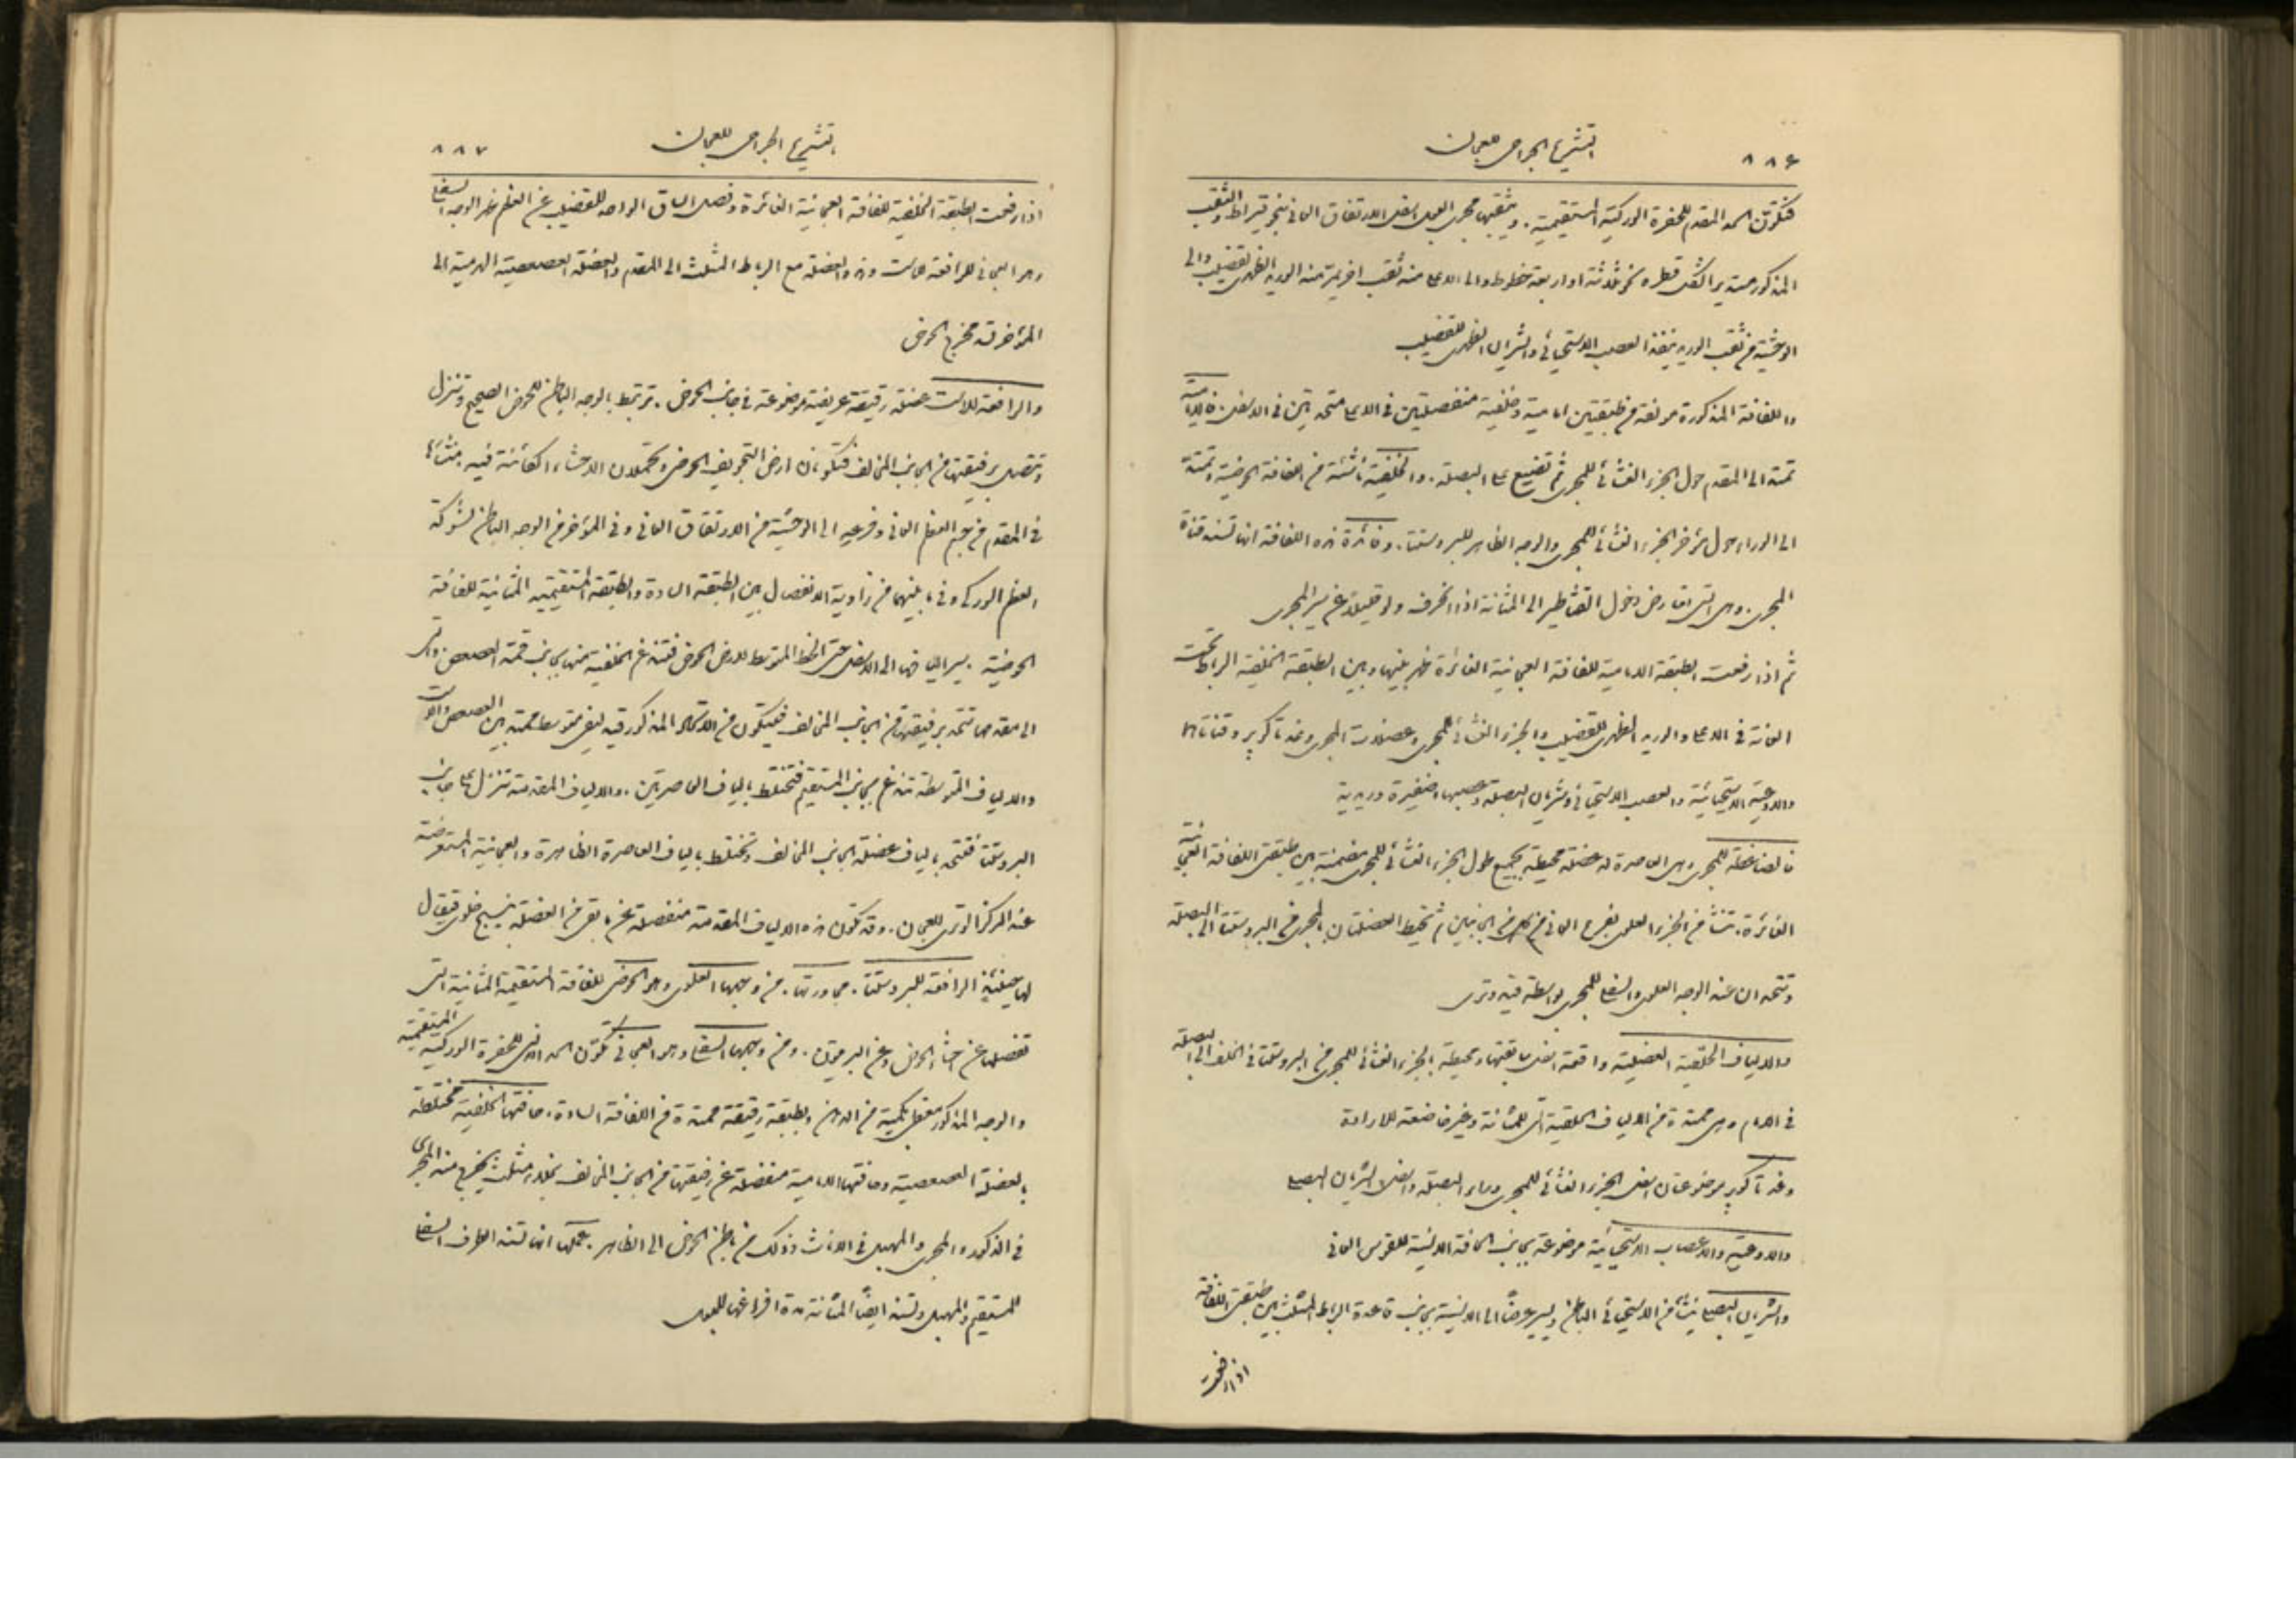 ٨٨٦
التشريح الجراحى للعجان
فتكون الحد المقدم للحفرة الوركية المستقيمية. ويثقبها مجرى البول اسفل الارتفاق العانى بنحو قيراط والثقب
المذكور مستدير الشكل قطره نحو ثلاثة او اربعة خطوط والى الاعلا منه ثقب اخر يمر منه الوريد الظهرى للقضيب والى
الوحشية من ثقب الوريد ينفذ العصب الاستحيائى والشريان الظهرى للقضيب
واللفافة المذكورة مولفة من طبقتين امامية وخلفية منفصلتين فى الاعلا متحدتين فى الاسفل. فالامامية
تمتد الى المقدم حول الجزء الغشائى للمجرى ثم تضيع على البصلة. والخلفية ناشئة من اللفافة الحوضية وتمتد
الى الوراء حول مؤخر الجزء الغشائى للمجرى والوجه الظاهر للبروستتا. وفائدة هذه اللفافة انها تسند قناة
المجرى. وهى التى تعارض دخول القثاطير الى المثانة اذا انحرف ولو قليلاً عن سير المجرى
ثم اذا رفعت الطبقة الامامية للفافة العجانية الغائرة ظهر بينها وبين الطبقة الخلفية الرباط تحت
العانة فى الاعلا والوريد الظهرى للقضيب والجزء الغشائى للمجرى وعضلات المجرى وغدتا كوپر وقناتاهما
والاوعية الاستحيائية والعصب الاستحيائى وشريان البصلة وعصبها وضفيرة وريدية
فالضاغطة للمجرى وهى العاصرة له عضلة محيطة بجميع طول الجزء الغشائى للمجرى متضمنة بين طبقتى اللفافة العجانية
الغائرة. تنشأ من الجزء العلوى لفرع العانى من كل من الجانبين ثم تحيط العضلتان بالمجرى من البروستتا الى البصلة
وتتحدان عند الوجه العلوى والسفلى للمجرى بواسطة قيد وترى
والالياف الحلقية العضلية واقعة اسفل سابقتها ومحيطة بالجزء الغشائى للمجرى من البروستتا فى الخلف الى البصلة
فى الامام وهى ممتدة من الالياف الحلقية التى للمثانة وغير خاضعة للارادة
وغدتا كوپر موضوعتان اسفل الجزء الغشائى للمجرى وراء البصلة واسفل الشريان البصلى
والاوعية والاعصاب الاستحيائية موضوعة بجانب الحافة الانسية للقوس العانى
والشريان البصلى ينشأ من الاستحيائى الباطن ويسير عرضاً الى الانسية بجانب قاعدة الرباط المثلث بين طبقتى اللفافة
اذا رفعت
التشريح الجراحى للعجان
٨٨٧
اذا رفعت الطبقة الخلفية للفافة العجانية الغائرة وفصل الساق الواحد للقضيب عن العظم ظهر الوجه السفلى
وهو العجانى للرافعة للاست وهذه العضلة مع الرباط المثلث الى المقدم والعضلة العصعصية الهرمية الى
المؤخر تسد مخرج الحوض
والرافعة للاست عضلة رقيقة عريضة موضوعة فى جانب الحوض. ترتبط بالوجه الباطن للحوض الصحيح وتنزل
وتتصل برفيقتها من الجانب المخالف فتكونان ارض التجويف الحوضى وتحملان الاحشاء الكائنة فيه. منشأها
فى المقدم من جسم العظم العانى وفرعيه الى الوحشية من الارتفاق العانى وفى المؤخر من الوجه الباطن لشوكة
العظم الوركى وفى ما بينهما من زاوية الانفصال بين الطبقة السادة والطبقة المستقيمية المثانية للفافة
الحوضية. يسير اليافها الى الاسفل حتى الخط المتوسط لارض الحوض فتندغم الخلفية منها بجانب قمة العصعص والتى
الى مقدمها تتحد برفيقتها من الجانب المخالف فيتكون من الاتحاد المذكور قيد ليفى متوسط ممتد بين العصعص والاست
والالياف المتوسطة تندغم بجانب المستقيم فتختلط بالياف العاصرتين. والالياف المقدمة تنزل على جانب
البروستتا فتتحد بالياف عضلة الجانب المخالف وتختلط بالياف العاصرة الظاهرة والعجانية المستعرضة
عند المركز الوترى للعجان. وقد تكون هذه الالياف المقدمة منفصلة عن ما بقى من العضلة بنسيج خلوى فيقال
لها حينئذ الرافعة للبروستتا. مجاورتها. من وجهها العلوى وهو الحوضى للفافة المستقيمية المثانية التى
تفصلها عن احشاء الحوض وعن البريتون. ومن وجهها السفلى وهو العجانى تكون الحد الانسى للحفرة الوركية المستقيمية
والوجه المذكور مغطى بكمية من الدهن وبطبقة رقيقة ممتدة من اللفافة السادة. حافتها الخلفية مختلطة
بالعضلة العصعصية وحافتها الامامية منفصلة عن رفيقتها من الجانب المخالف بخلاء مثلث يخرج منه المجرى
فى الذكور والمجرى والمهبل فى الاناث وذلك من باطن الحوض الى الظاهر. عملها انها تسند الطرف السفلى
للمستقيم والمهبل وتسند ايضاً المثانة مدة افراغها للبول